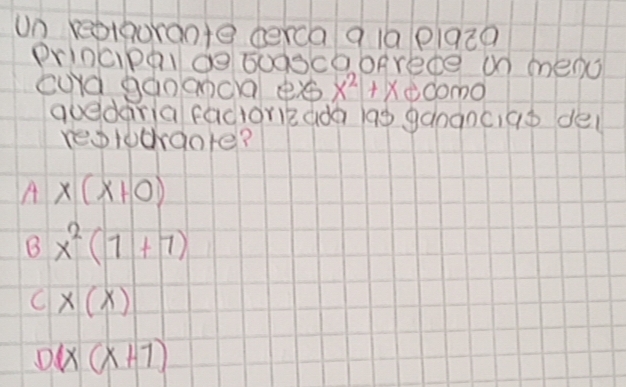 Un restaurante cerca a la plaza
principal de Guasca ofrece un menu
cuya ganancia es x² + x ¿como
quedaria factorizada las ganancias del
restaurante?
A x(x+0)
B x²(1+1)
C x(x)
D x(x+1)